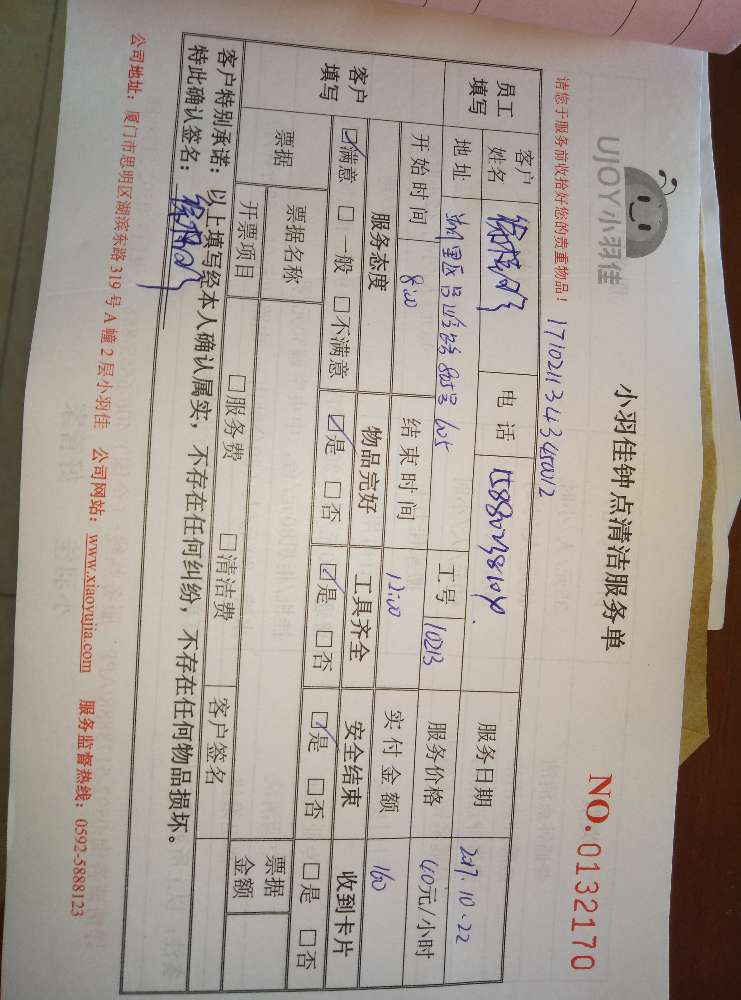 UJOY小羽佳
小羽佳钟点清洁服务单
NO.0132170
请您于服务前收拾好您的贵重物品！
员工填写 客户姓名 电话 服务日期 2017.10.22
地址 工号 10213 服务价格 40元/小时
开始时间 8:00 结束时间 12:00 实付金额 160
客户填写 服务态度 物品完好 工具齐全 安全结束 收到卡片
☑满意 □一般 □不满意 ☑是 □否 ☑是 □否 ☑是 □否 □是 □否
票据 票据名称 票据金额
开票项目 □服务费 □清洁费 客户签名
客户特别承诺：以上填写经本人确认属实，不存在任何纠纷，不存在任何物品损坏。
特此确认签名：
公司地址：厦门市思明区湖滨东路319号A幢2层小羽佳 公司网站：www.xiaoyujia.com 服务监督热线：0592-5888123